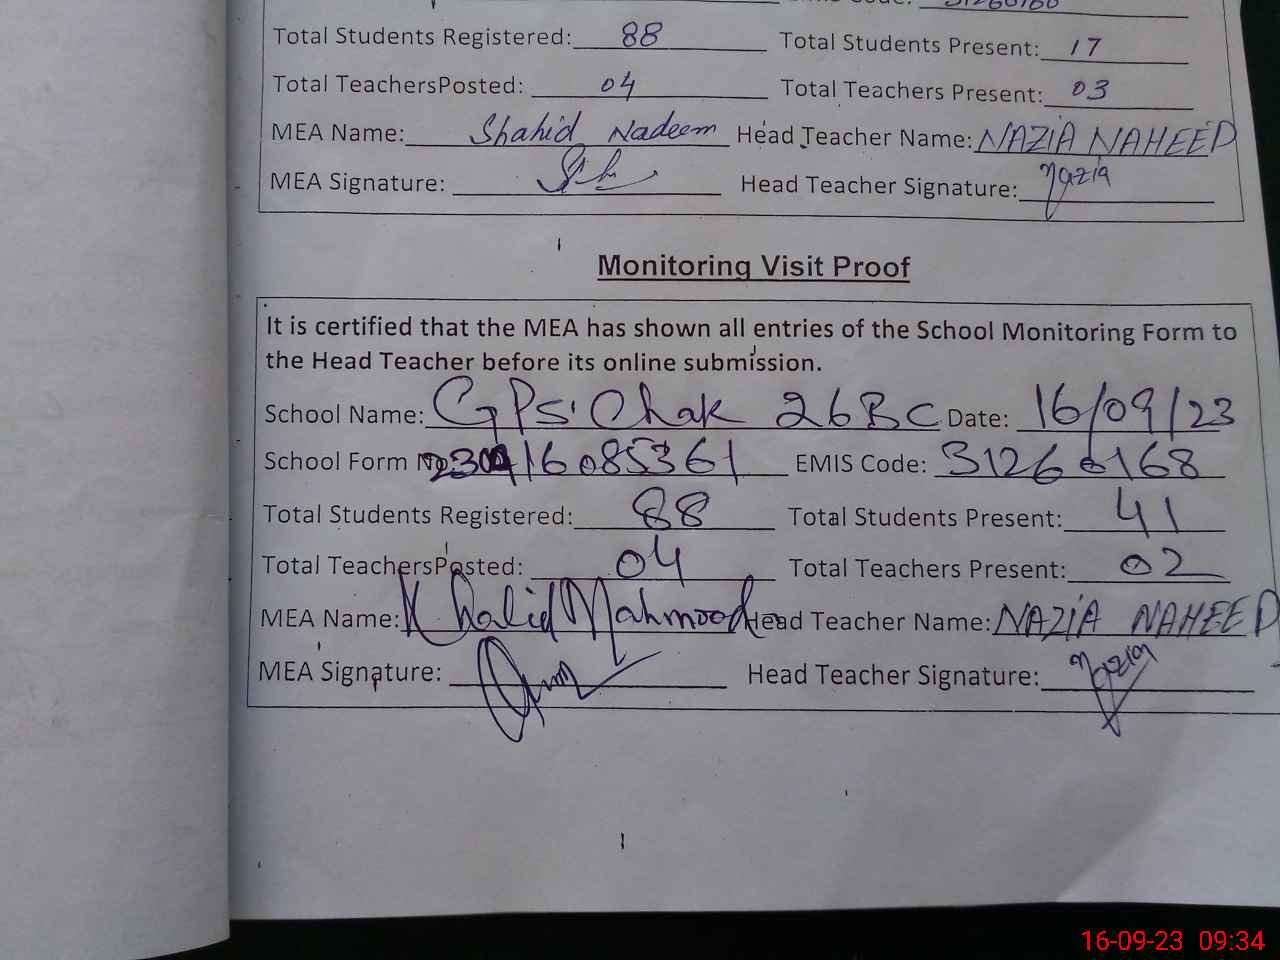 Total Students Registered: 88 Total Students Present: 17
Total TeachersPosted: 04 Total Teachers Present: 03
MEA Name: Shahid Nadeem Head Teacher Name: NAZIA NAHEED
MEA Signature: Head Teacher Signature: Nazia
Monitoring Visit Proof
It is certified that the MEA has shown all entries of the School Monitoring Form to
the Head Teacher before its online submission.
School Name: GPS Chak 26BC Date: 16/09/23
School Form No: EMIS Code: 31260168
Total Students Registered: 88 Total Students Present: 41
Total TeachersPosted: 04 Total Teachers Present: 02
MEA Name: Khalid Mahmood Head Teacher Name: NAZIA NAHEED
MEA Signature: Head Teacher Signature: Nazia
16-09-23 09:34